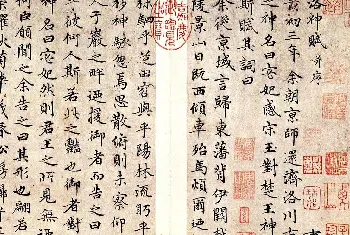 洛神賦 并序
黃初三年余朝京師還濟洛川古
之神名曰宓妃感宋玉對楚王神
斯賦其詞曰
余從京域言歸東藩背伊闕越
陵景山日既西傾車殆馬煩爾廼
駟乎芝田容與乎陽林流眄乎
移神駭忽焉思散俯則未察仰
于巖之畔廼援御者而告之曰
彼何人斯若此之豔也御者對
名曰宓妃然則君王之所見無
何臣願聞之余告之曰其形也翩若
秋菊華茂春松髣髴兮